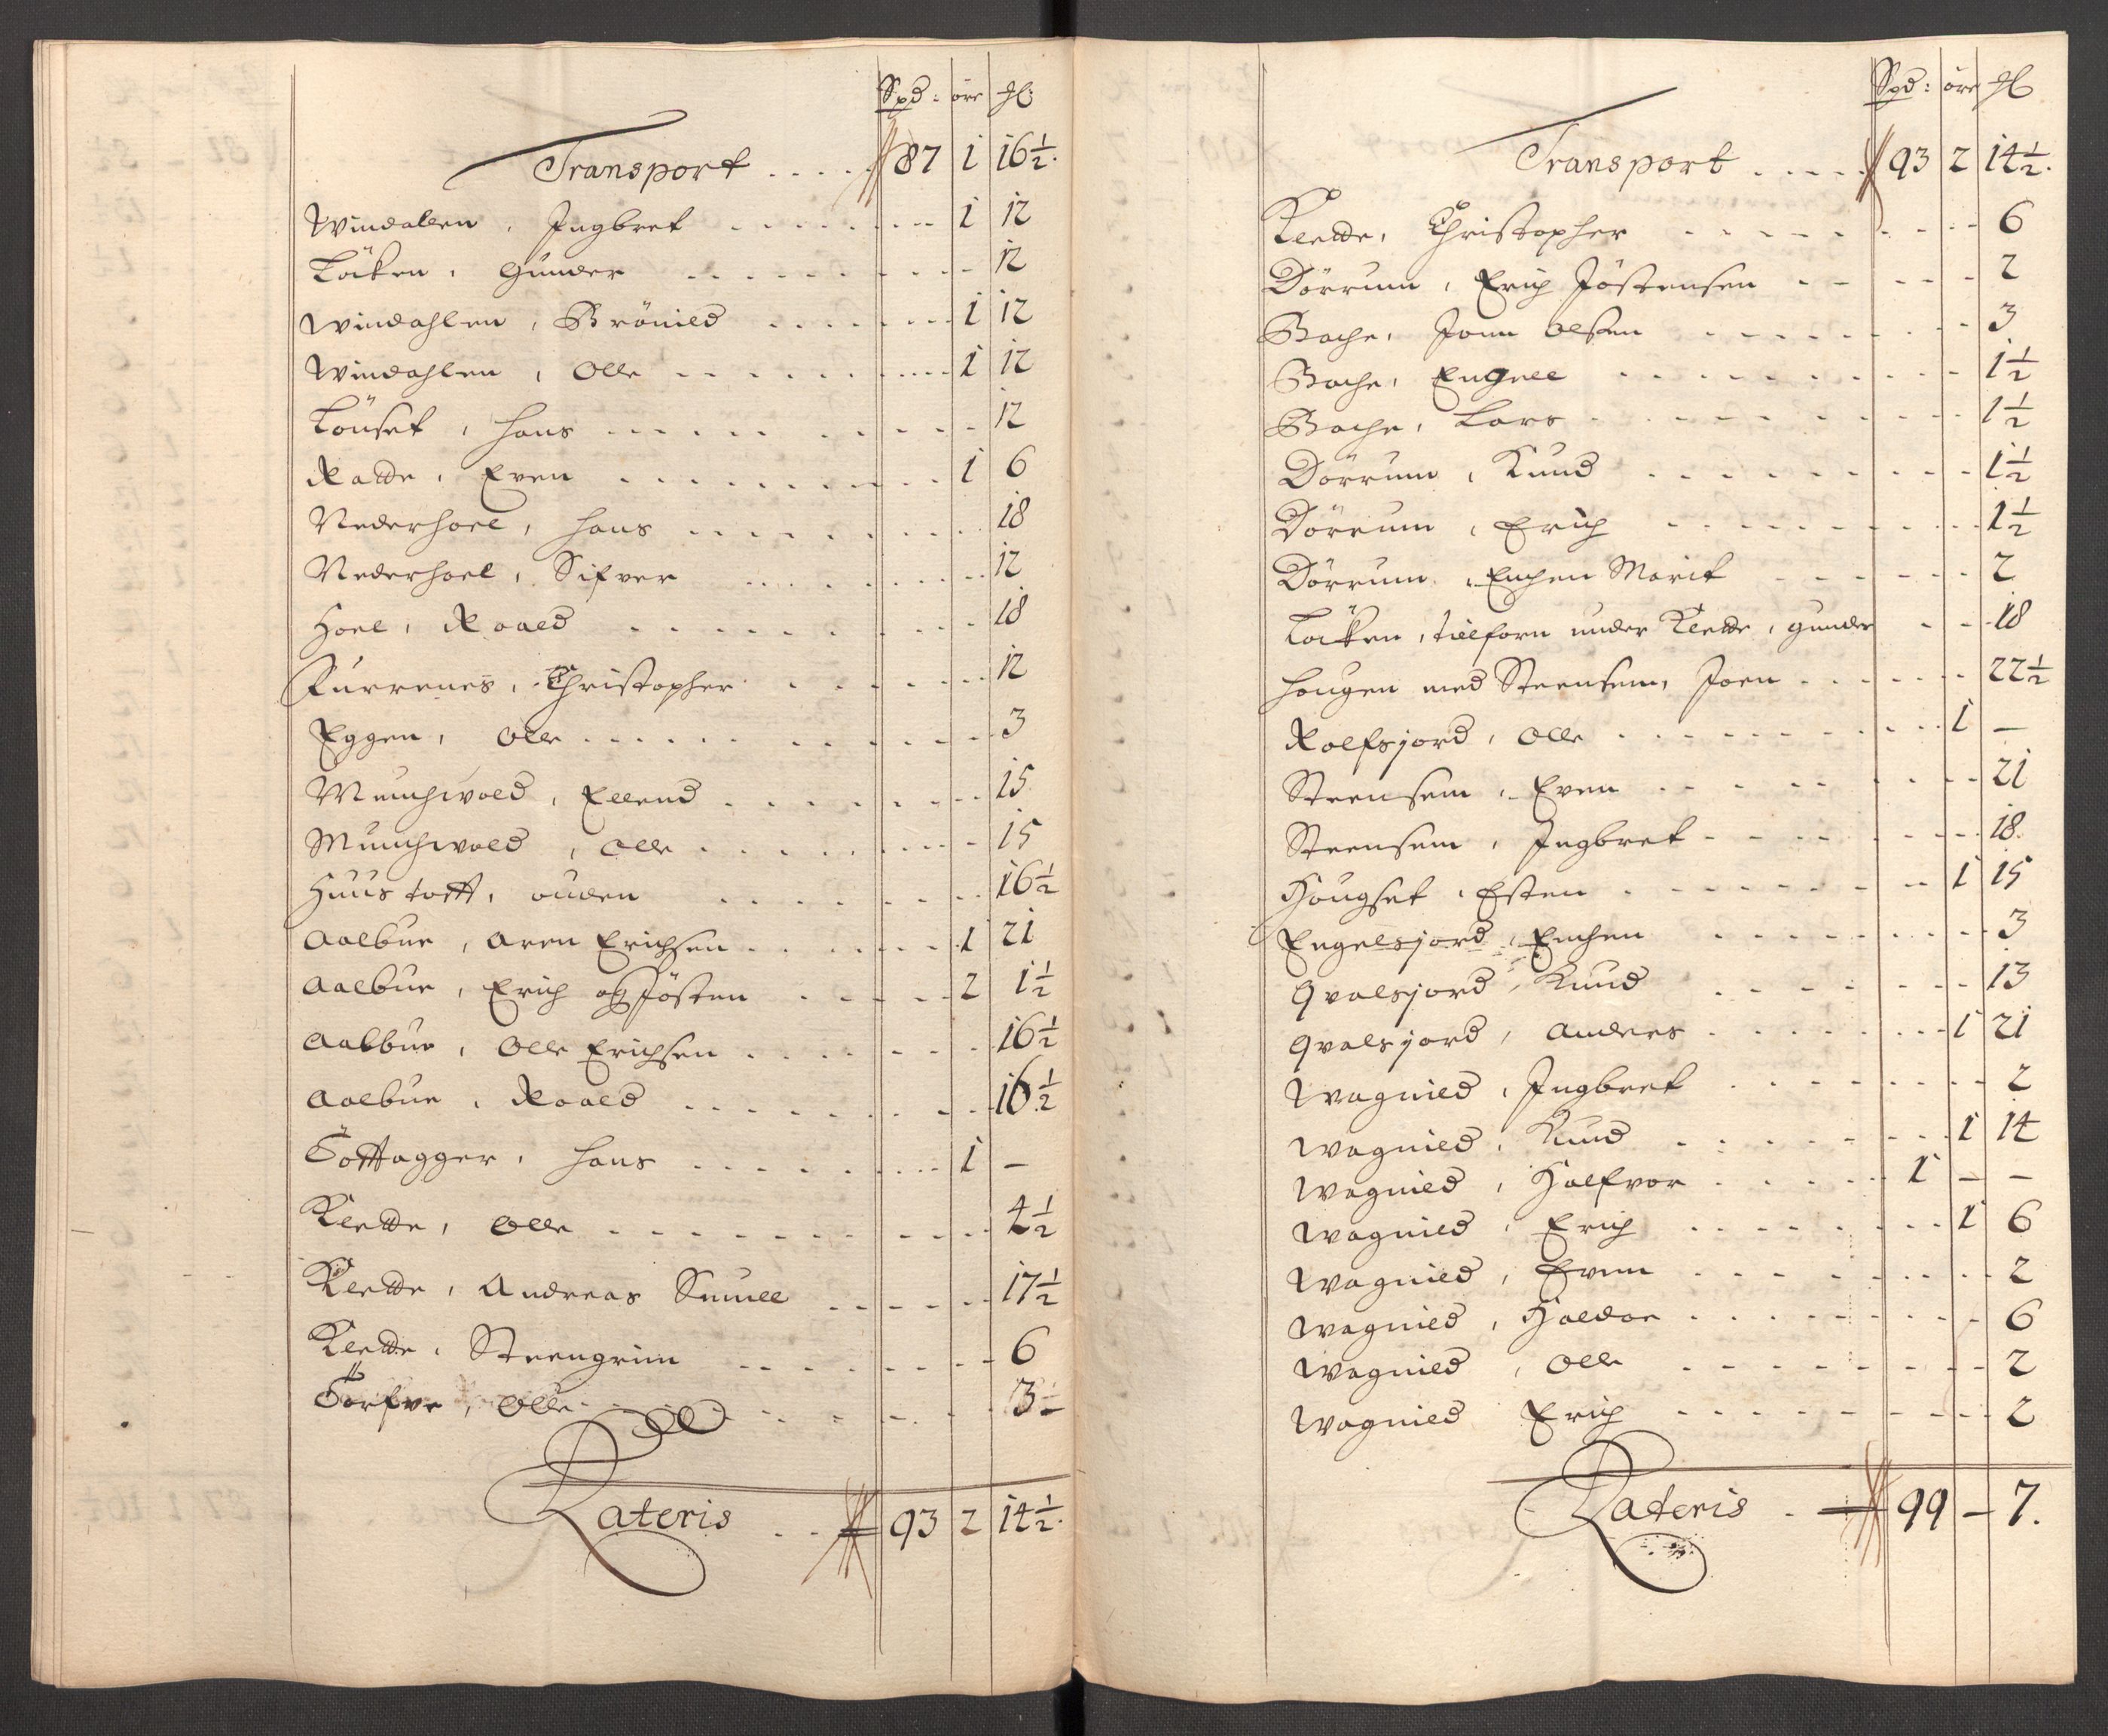 Spd: öre
Transport 87 1 16½
Windalen, Ingbret 1 12
Löcken, Gunder 12
Windahlen, Brönild 1 12
Windahlen, Olle 1 12
Lönset, Hans 12
Ratde, Even 1 6
Nederhoel, Hans 18
Nederhoel, Sifver 12
Hoel, Roald 18
Furrenes, Christopher 12
Eggen, Olle 3
Munchvold, Ellend 15
Munchvold, Olle 15
Huustoft, Ouden 16½
Aalbue, Aren Erichsen 1 21
Aalbue, Erich og Jösten 2 1½
Aalbue, Olle Erichsen 16½
Aalbue, Roald 16½
hans 1 –
Kletde, Olle 4½
Kletde, Andreas 17½
Kletde, Steengrim 6
Olle 3
Lateris 93 2 14½
Spd: öre
Transport 93 2 14½
Kletde, Christopher 6
Dörrum, Erich Jöstensen 2
Bache, Jonn Olsen 3
Bache, Engvel 1½
Bache, Lars 1½
Dörrum, Knud 1½
Dörrum, Erich 1½
Dörrum, Enchen Marit 2
Löcken, tilforn under Kletde, gunder 18
Hougen med Steensem, Joen 22½
Rolfsjord, Olle 1 –
Steensem, Even 21
Steensem, Ingbret 18
Hougset, Esten 1 15
Engelsjord, Enchen 3
Qvalsjord, Knud 13
Qvalsjord, Anders 1 21
Wagnild, Ingbret 2
Wagnild, Knud 1 14
Wagnild, Halfvor 1 – –
Wagnild, Erich 1 6
Wagnild, Even 2
Wagnild, Haldor 6
Wagnild, Olle 2
Wagnild Erich 2
Lateris 99 – 7.